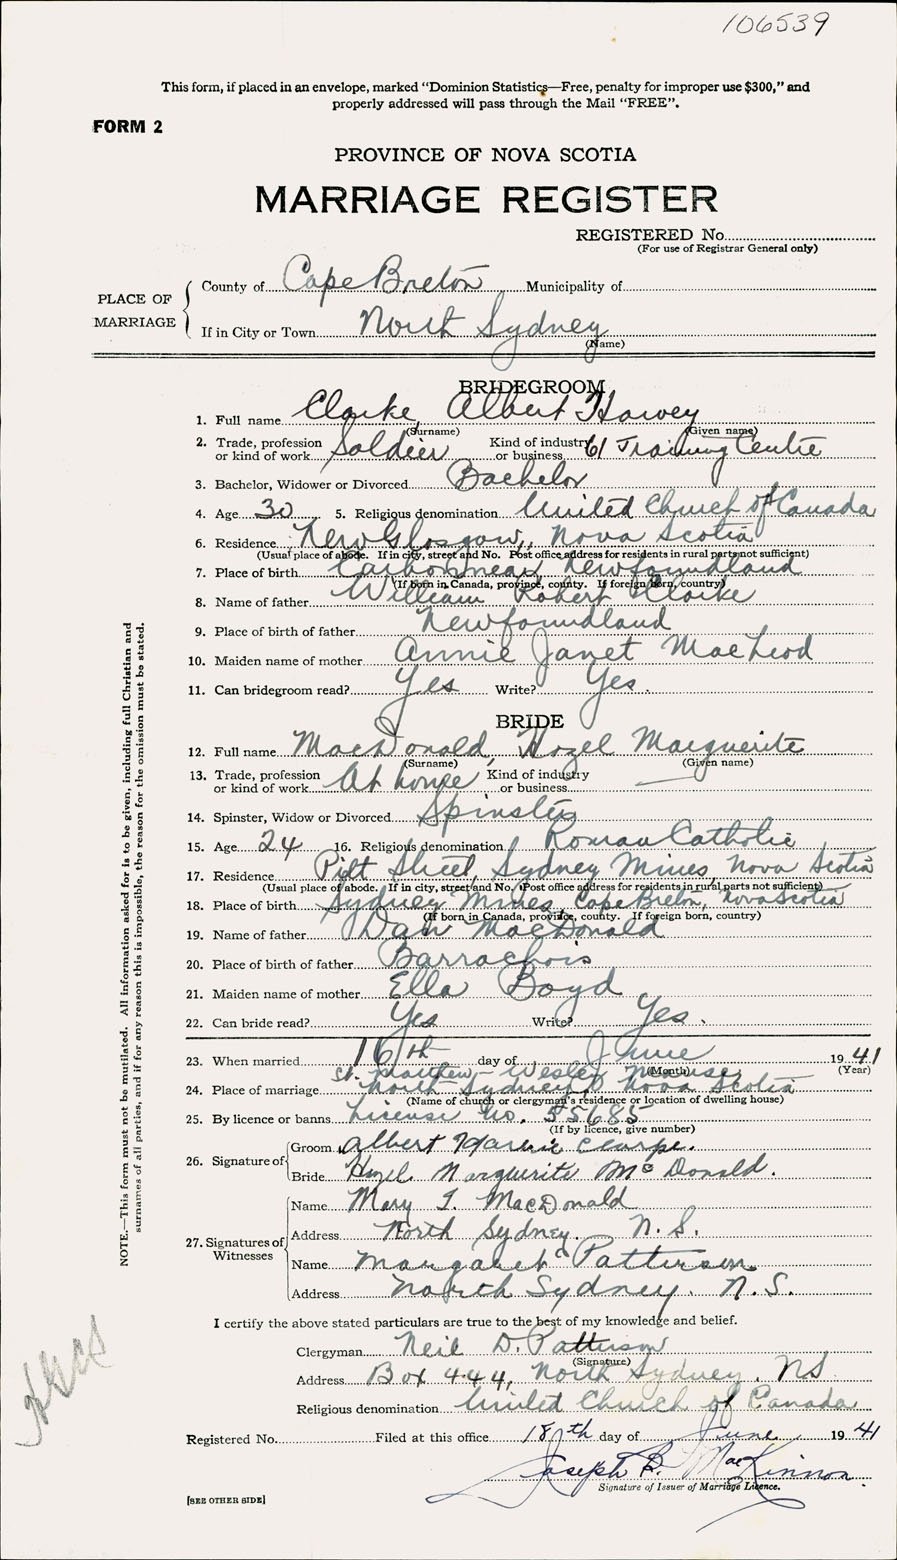 106539
This form, if placed in an envelope, marked "Dominion Statistics—Free, penalty for improper use $300," and
properly addressed will pass through the Mail "FREE".
FORM 2
PROVINCE OF NOVA SCOTIA
MARRIAGE REGISTER
REGISTERED No.
(For use of Registrar General only)
PLACE OF MARRIAGE
County of Cape Breton Municipality of
If in City or Town North Sydney
(Name)
BRIDEGROOM
1. Full name Clarke, Albert Harvey
(Surname) (Given name)
2. Trade, profession or kind of work Soldier Kind of industry or business 61 Training Centre
3. Bachelor, Widower or Divorced Bachelor
4. Age 30 5. Religious denomination United Church of Canada
6. Residence New Glasgow, Nova Scotia
(Usual place of abode. If in city, street and No. Post office address for residents in rural parts not sufficient)
7. Place of birth Carbonnear, Newfoundland
(If born in Canada, province, county. If foreign born, country)
8. Name of father William Robert Clarke
9. Place of birth of father Newfoundland
10. Maiden name of mother Annie Janet MacLeod
11. Can bridegroom read? Yes Write? Yes.
BRIDE
12. Full name MacDonald, Hazel Marguerite
(Surname) (Given name)
13. Trade, profession or kind of work At home Kind of industry or business
14. Spinster, Widow or Divorced Spinster
15. Age 24 16. Religious denomination Roman Catholic
17. Residence Pitt Street, Sydney Mines, Nova Scotia
(Usual place of abode. If in city, street and No. Post office address for residents in rural parts not sufficient)
18. Place of birth Sydney Mines, Cape Breton, Nova Scotia
(If born in Canada, province, county. If foreign born, country)
19. Name of father Dan MacDonald
20. Place of birth of father Barrachois
21. Maiden name of mother Ella Boyd
22. Can bride read? Yes Write? Yes.
23. When married 16th day of June 1941
(Month) (Year)
St. Matthew-Wesley Manse,
24. Place of marriage North Sydney, Nova Scotia
(Name of church or clergyman's residence or location of dwelling house)
25. By licence or banns License No. 55685
(If by licence, give number)
26. Signature of
Groom Albert Clarke.
Bride Hazel Marguerite McDonald.
27. Signatures of Witnesses
Name Mary I. MacDonald
Address North Sydney. N.S.
Name Margaret Patterson
Address North Sydney. N.S.
I certify the above stated particulars are true to the best of my knowledge and belief.
Clergyman Neil D. Patterson
(Signature)
Address Box 444, North Sydney. NS
Religious denomination United Church of Canada
Registered No. Filed at this office 18th day of June 1941
Joseph B. MacKinnon.
Signature of Issuer of Marriage Licence.
[SEE OTHER SIDE]
NOTE.—This form must not be mutilated. All information asked for is to be given, including full Christian and
surnames of all parties, and if for any reason this is impossible, the reason for the omission must be stated.